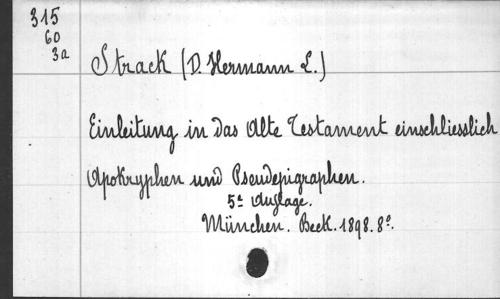 315
60
3a
Strack (D. Hermann L.)
Einleitung in das Alte Testament einschliesslich
Apokryphen und Pseudepigraphen.
5e Auflage.
München. Beck. 1898. 8°.